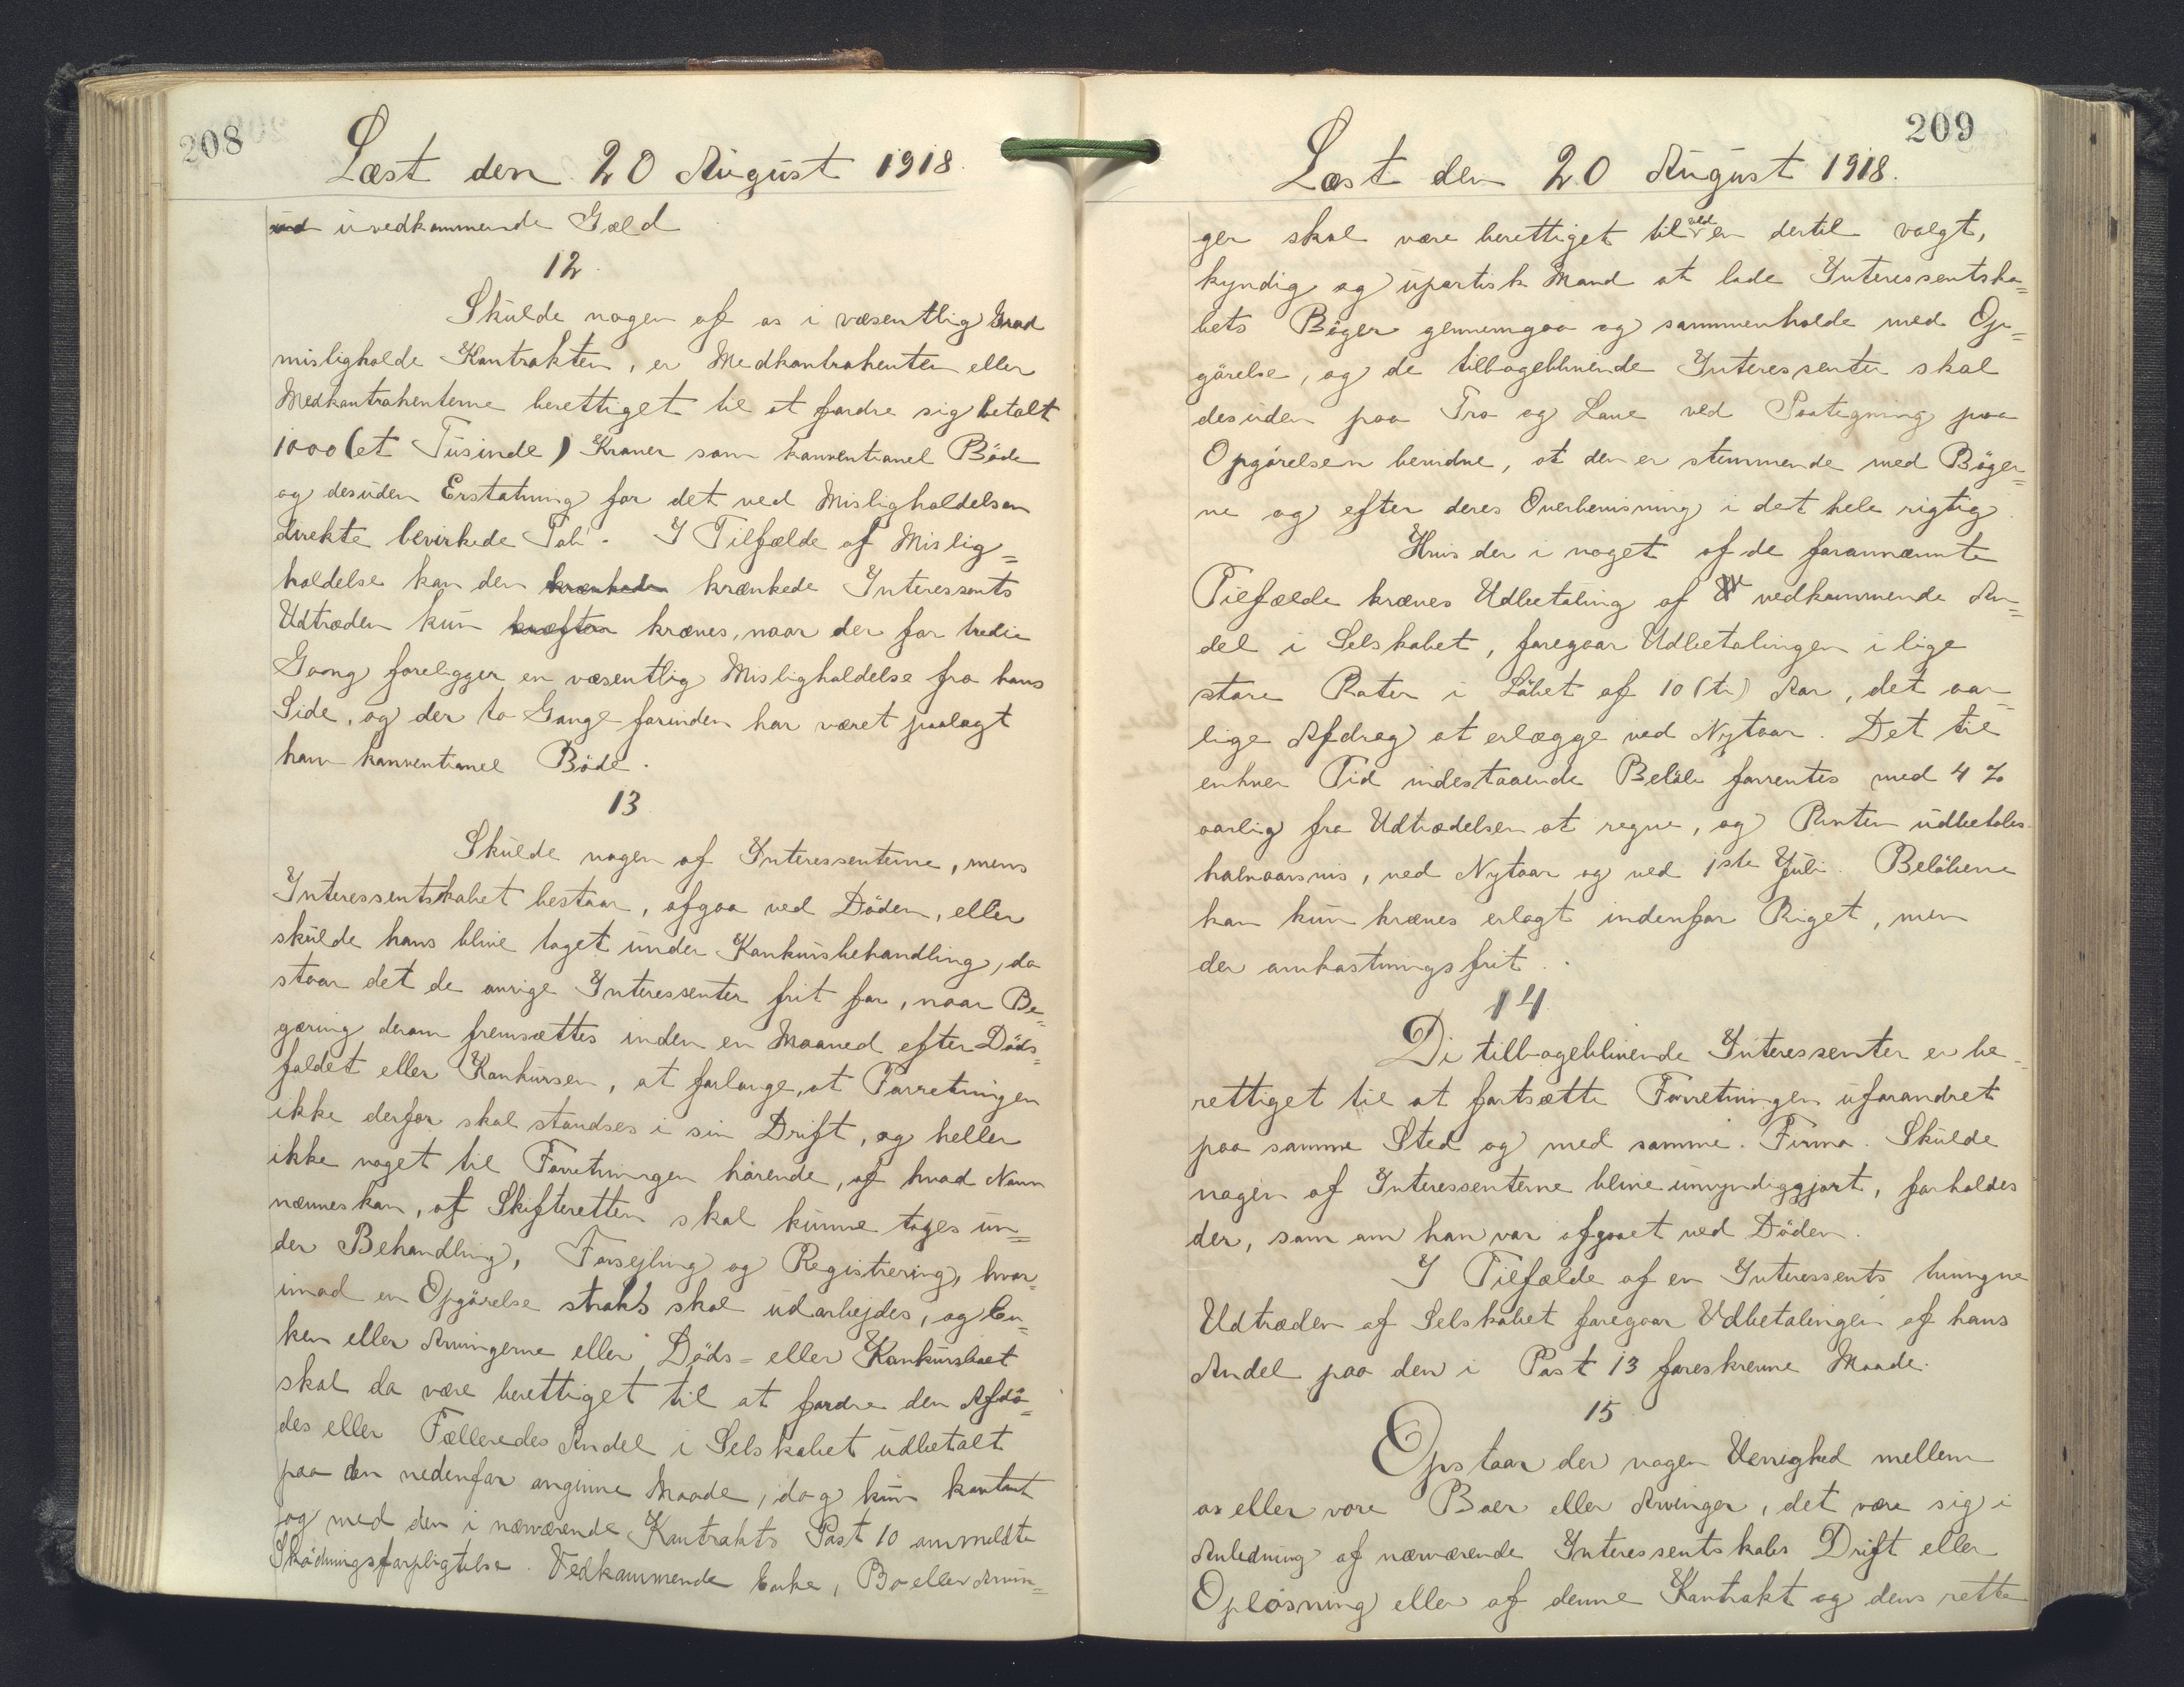 208
Læst den 20 August 1918.
ud uvedkommende Gæld
12.
Skulde nogen af os i væsentlig Grad
misligholde Kontrakten, er Medkontrahenten eller
Medkontrahenterne berettiget til at fordre sig betalt
1000 (et Tusinde) Kroner som konventionel Böde
og desuden Erstatning for det ved Misligholdelsen
direkte bevirkede Tab. I Tilfælde af Mislig=
holdelse kan den krænkede krænkede Interessents
Udtræden kun kræftes kræves, naar der for tredie
Gang foreligger en væsentlig Misligholdelse fra hans
Side, og der to Gange forinden har været paalagt
ham konventionel Böde.
13
Skulde nogen af Interessenterne, mens
Interessentskabet bestaar, afgaa ved Döden, eller
skulde hans blive taget under Konkursbehandling, da
staar det de övrige Interessenter frit for, naar Be=
gæring derom fremsættes inden en Maaned efter Döds=
faldet eller Konkursen, at forlange, at Forretningen
ikke derfor skal standses i sin Drift, og heller
ikke noget til Forretningen hörende, af hvad Navn
nævnes kan, af Skifteretten skal kunne tages un=
der Behandling, Forsejling og Registrering, hvor=
imod en Opgörelse straks skal udarbejdes, og En=
ken eller Arvingerne eller Döds= eller Konkursboet
skal da være berettiget til at fordre den Afdö=
des eller Fælleredes Andel i Selskabet udbetalt
paa den nedenfor angivne Maade, dog kun kontant
og med den i nærværende Kontrakts Post 10 ommeldte
Sködningsforpligtelse. Vedkommende Enke, Bo eller Arvin=
209
Læst den 20 August 1918.
ger skal være berettiget til ved en dertil valgt,
kyndig og upartisk Mand at lade Interessentska=
bets Böger gennemgaa og sammenholde med Op=
görelse, og de tilbageblivende Interessenter skal
desuden paa Tro og Love ved Paategning paa
Opgörelsen bevidne, at den er stemmende med Böger=
ne og efter deres Overbevisning i det hele rigtig.
Hvis der i noget af de forannævnte
Tilfælde kræves Udbetaling af vedkommende An=
del i Selskabet, foregaar Udbetalingen i lige
store Rater i Löbet af 10 (ti) Aar, det aar=
lige Afdrag at erlægge ved Nytaar. Det til
enhver Tid indestaaende Belöb forrentes med 4 %
aarlig fra Udtrædelsen at regne, og Renten udbetales
halvaarsvis, ved Nytaar og ved 1ste Juli. Belöbene
kan kun kræves erlagt indenfor Riget, men
der omkostningsfrit.
14
De tilbageblivende Interessenter er be=
rettiget til at fortsætte Forretningen uforandret
paa samme Sted og med samme Firma. Skulde
nogen af Interessenterne blive umyndiggjort, forholdes
der, som om han var afgaaet ved Döden.
I Tilfælde af en Interessents tvungne
Udtræden af Selskabet foregaar Udbetalingen af hans
Andel paa den i Post 13 foreskrevne Maade.
15
Opstaar der nogen Uenighed mellem
os eller vore Boer eller Arvinger, det være sig i
Anledning af nærværende Interessentskabs Drift eller
Oplösning eller af denne Kontrakt og dens rette